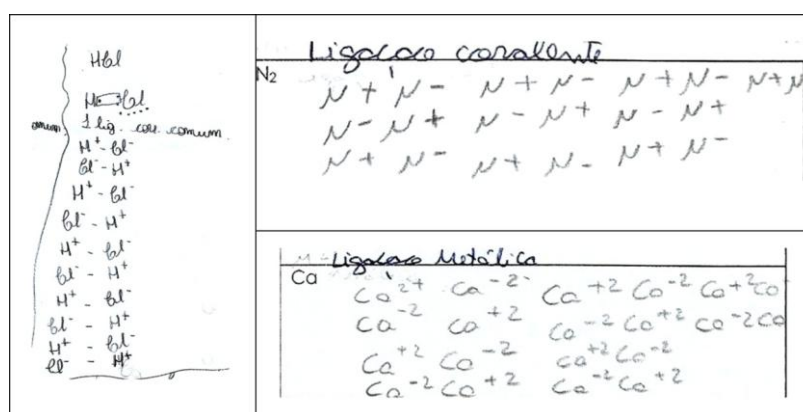 HCl
H Cl
1 lig. cov. comum
H⁺ - Cl⁻
Cl⁻ - H⁺
H⁺ - Cl⁻
Cl⁻ - H⁺
H⁺ - Cl⁻
Cl⁻ - H⁺
H⁺ - Cl⁻
Cl⁻ - H⁺
H⁺ - Cl⁻
Cl⁻ - H⁺
Ligação covalente
N₂
N + N - N + N - N + N - N + N
N - N + N - N + N - N +
N + N - N + N - N + N -
Ligação Metálica
Ca
Ca²⁺ Ca⁻² Ca⁺² Ca⁻² Ca⁺² Ca
Ca⁻² Ca⁺² Ca⁻² Ca⁺² Ca⁻² Ca
Ca⁺² Ca⁻² Ca⁺² Ca⁻²
Ca⁻² Ca⁺² Ca⁻² Ca⁺²